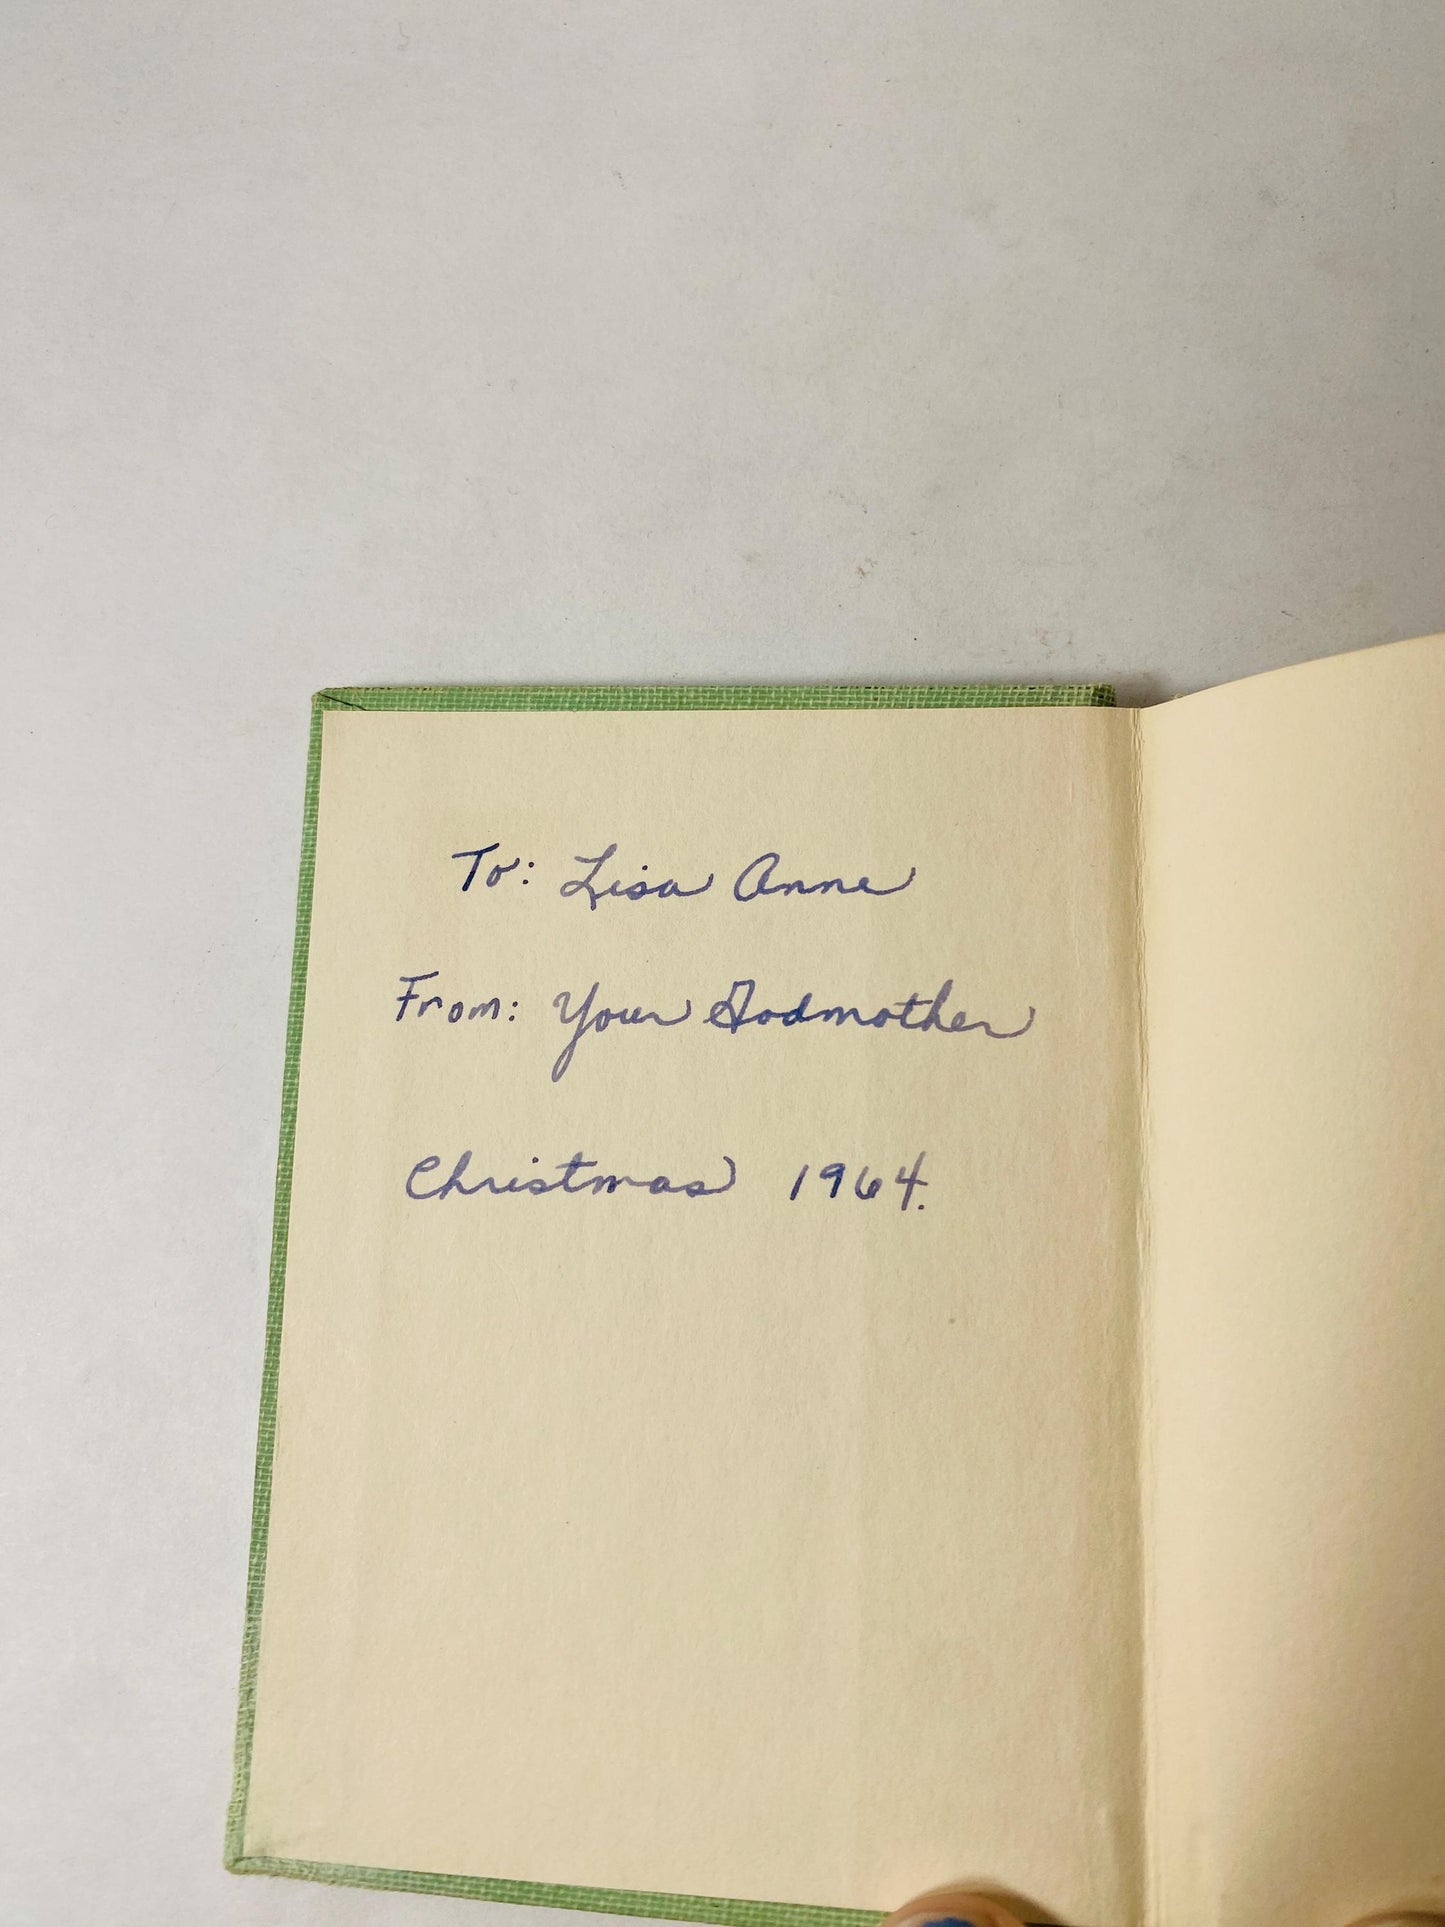 To: Lisa Anne
From: Your Godmother
Christmas 1964.